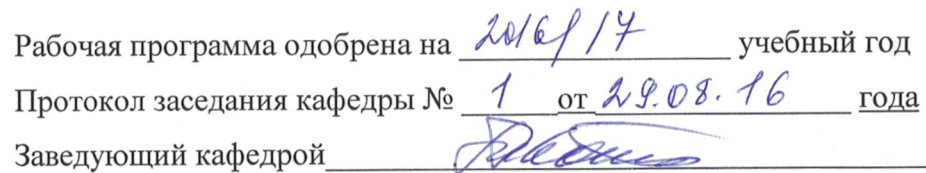 Рабочая программа одобрена на 2016/17 учебный год
Протокол заседания кафедры № 1 от 29.08.16 года
Заведующий кафедрой